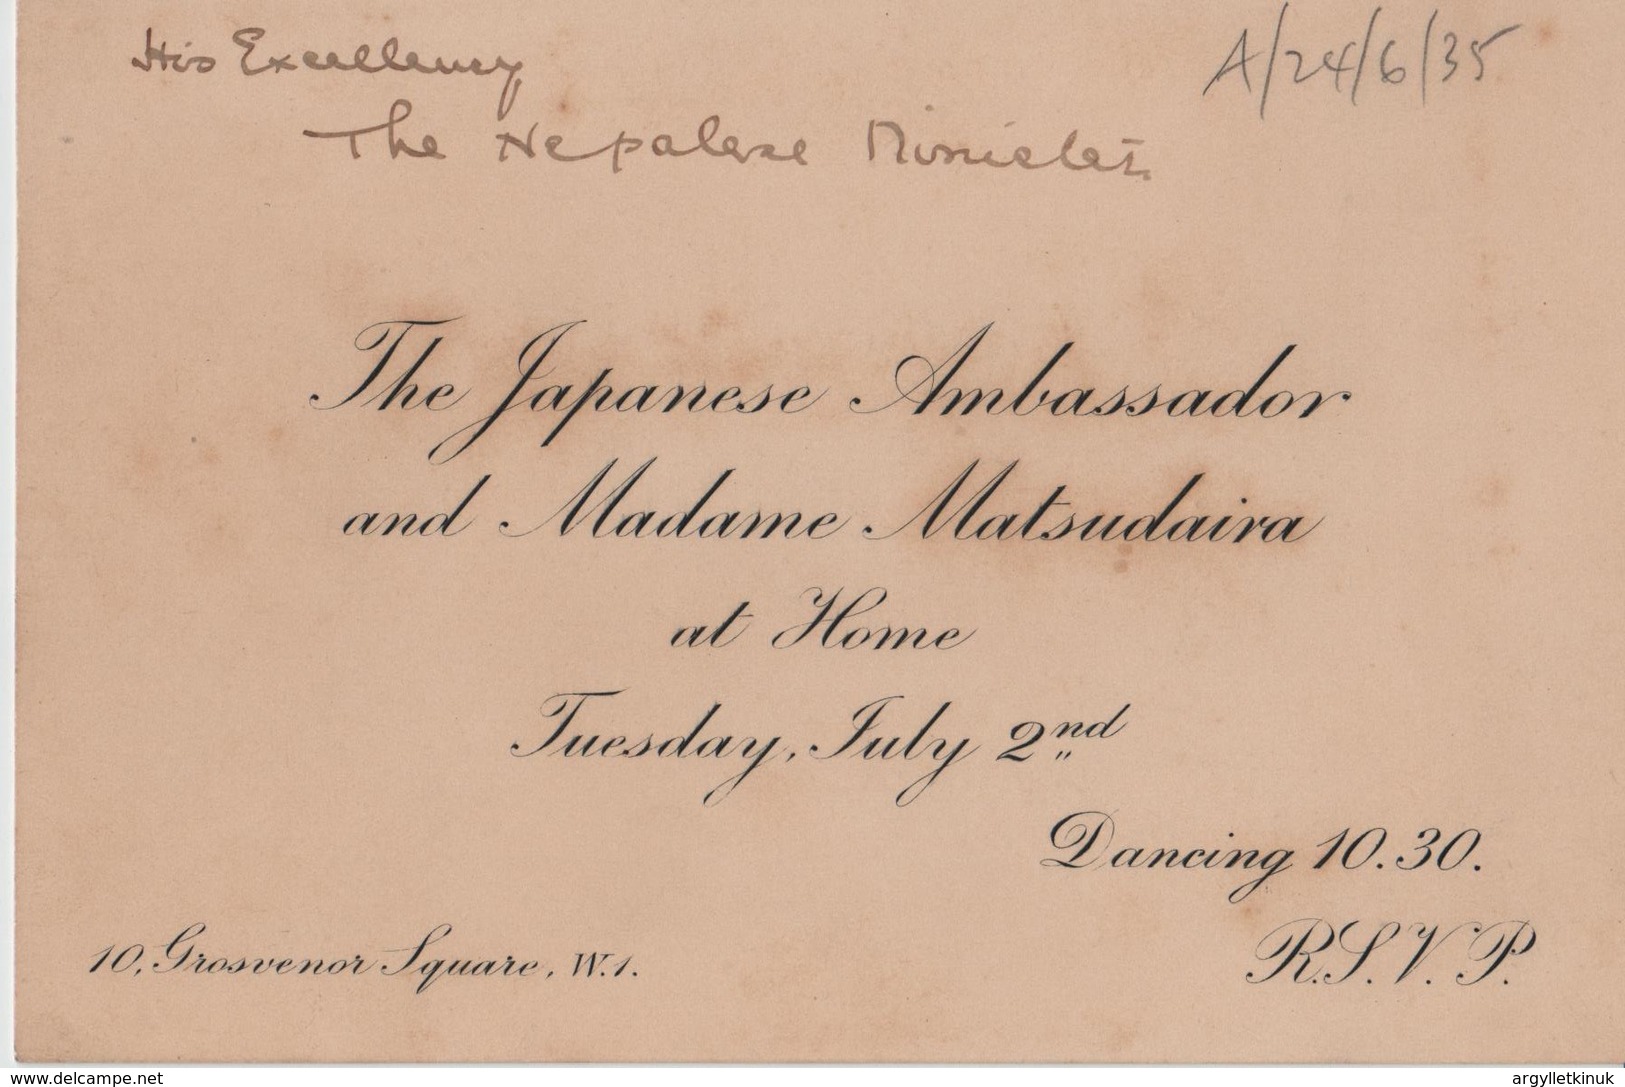 His Excellency
A/24/6/35
The Nepalese Minister.
The Japanese Ambassador
and Madame Matsudaira
at Home
Tuesday, July 2nd
Dancing 10.30.
10, Grosvenor Square, W.1.
R.S.V.P.
www.delcampe.net
argylletkinuk